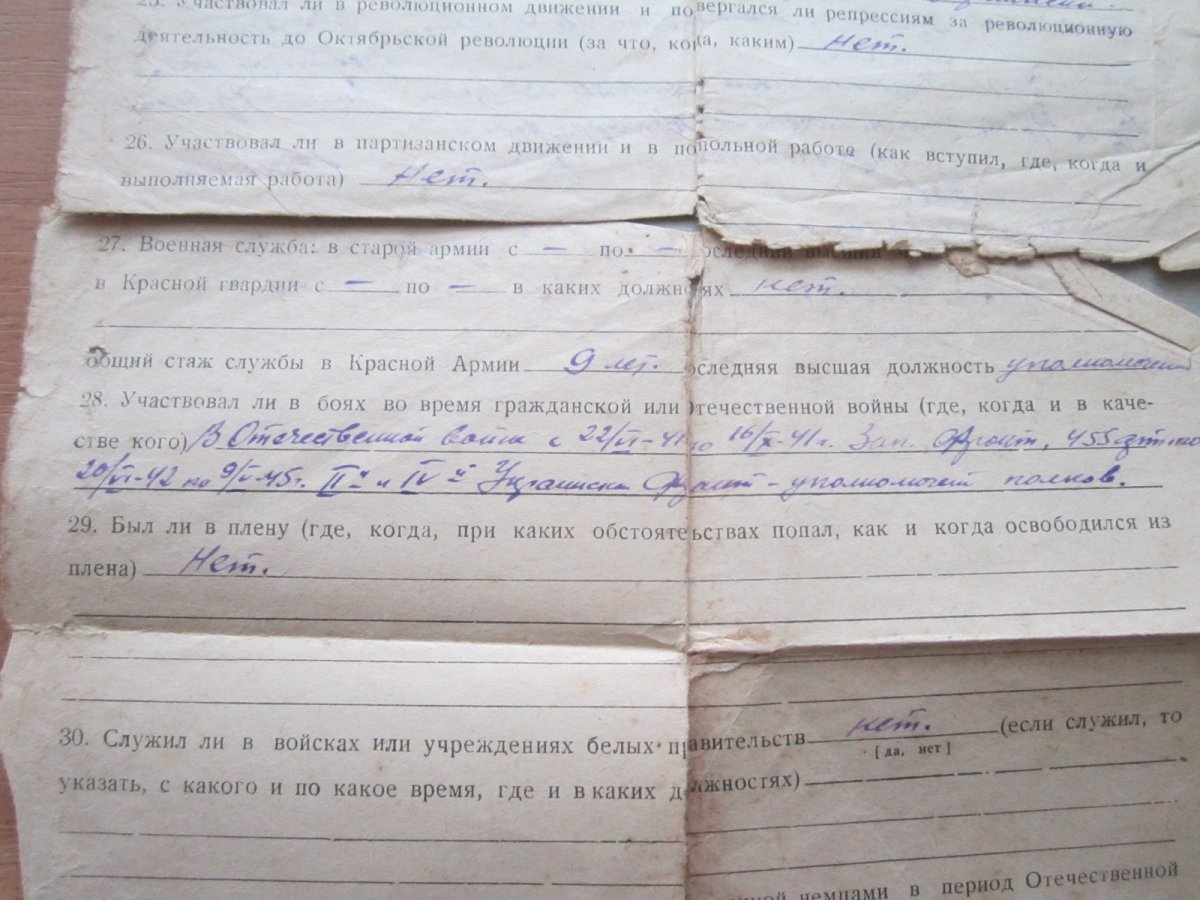 25. Участвовал ли в революционном движении и подвергался ли репрессиям за революционную
деятельность до Октябрьской революции (за что, когда, каким) нет.
26. Участвовал ли в партизанском движении и в попольной работе (как вступил, где, когда и
выполняемая работа) Нет.
27. Военная служба: в старой армии с — по — последний высший
в Красной гвардии с — по — в каких должностях нет.
общий стаж службы в Красной Армии 9 лет. последняя высшая должность уполномочен
28. Участвовал ли в боях во время гражданской или Отечественной войны (где, когда и в каче-
стве кого) В Отечественной войне с 22/VI-41 по 16/X-41 г. Зап. Фронт, 455
20/VI-42 по 9/V-45 г. II й и IV й Украински Фронт - уполномочен полков.
29. Был ли в плену (где, когда, при каких обстоятельствах попал, как и когда освободился из
плена) Нет.
30. Служил ли в войсках или учреждениях белых правительств нет. (если служил, то
[да, нет]
указать, с какого и по какое время, где и в каких должностях)
немцами в период Отечественной